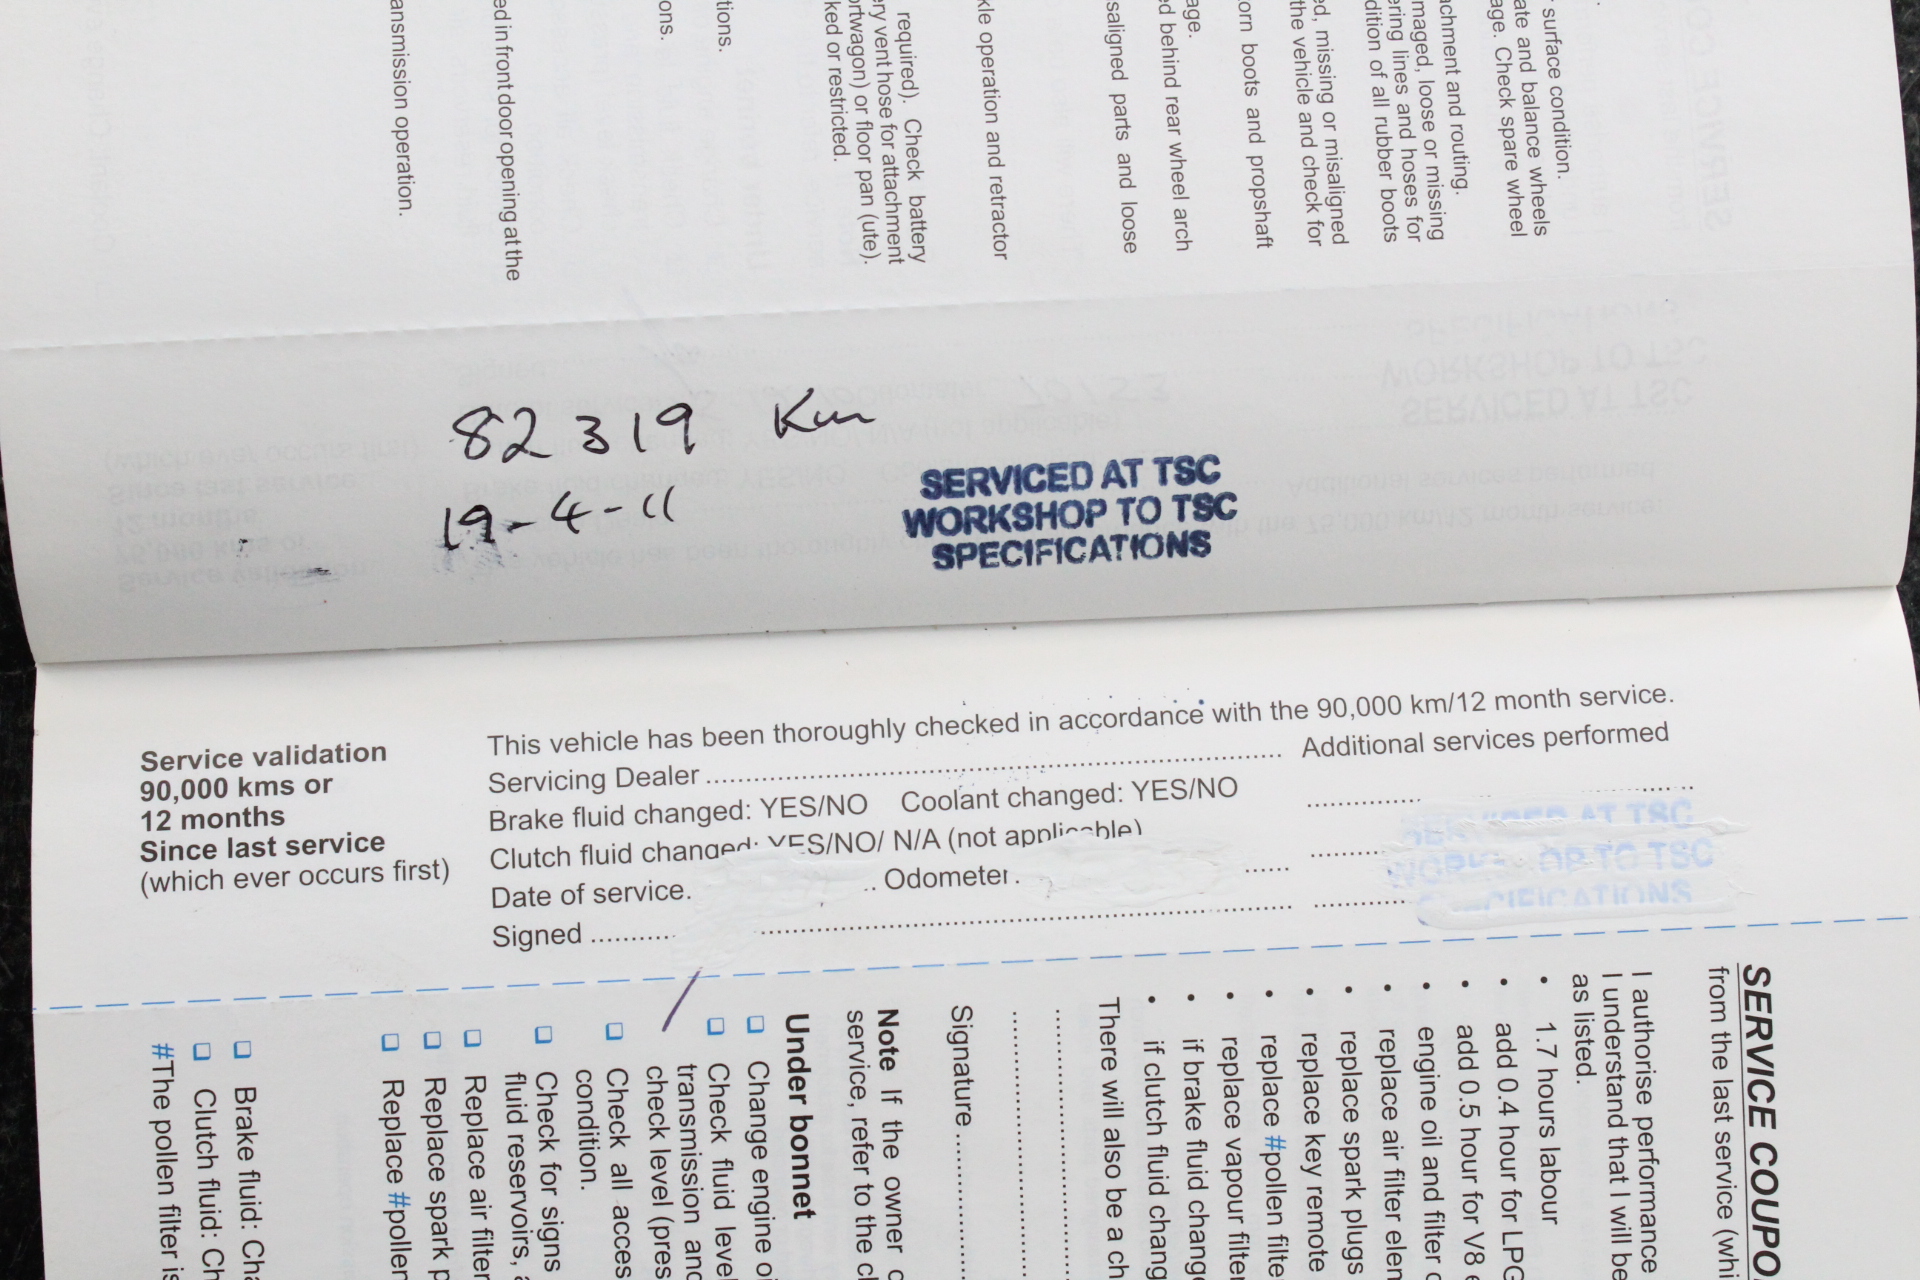 surface condition.
ate and balance wheels
age. Check spare wheel
achment and routing.
maged, loose or missing
ering lines and hoses for
dition of all rubber boots
ed, missing or misaligned
the vehicle and check for
orn boots and propshaft
age.
ed behind rear wheel arch
saligned parts and loose
kle operation and retractor
required). Check battery
ery vent hose for attachment
ortwagon) or floor pan (ute).
ked or restricted.
tions.
ons.
ed in front door opening at the
ansmission operation.
82 319 Km
19-4-11
SERVICED AT TSC
WORKSHOP TO TSC
SPECIFICATIONS
Service validation
90,000 kms or
12 months
Since last service
(which ever occurs first)
This vehicle has been thoroughly checked in accordance with the 90,000 km/12 month service.
Servicing Dealer
Additional services performed
Brake fluid changed: YES/NO Coolant changed: YES/NO
Clutch fluid changed: YES/NO/ N/A (not applicable)
Date of service. .. Odometer.
Signed
AT TSC
TO TSC
SERVICE COUPO
from the last service (whi
I authorise performance
I understand that I will be
as listed.
• 1.7 hours labour
• add 0.4 hour for LPG
• add 0.5 hour for V8 e
• engine oil and filter c
• replace air filter elen
• replace spark plugs
• replace key remote
• replace #pollen filte
• replace vapour filter
• if brake fluid change
• if clutch fluid chang
There will also be a ch
Signature
Note If the owner c
service, refer to the cl
Under bonnet
❑ Change engine oi
❑ Check fluid level
transmission and
check level (pres
❑ Check all acces
condition.
❑ Check for signs
fluid reservoirs, a
❑ Replace air filter
❑ Replace spark p
❑ Replace #pollen
❑ Brake fluid: Cha
❑ Clutch fluid: Ch
#The pollen filter is